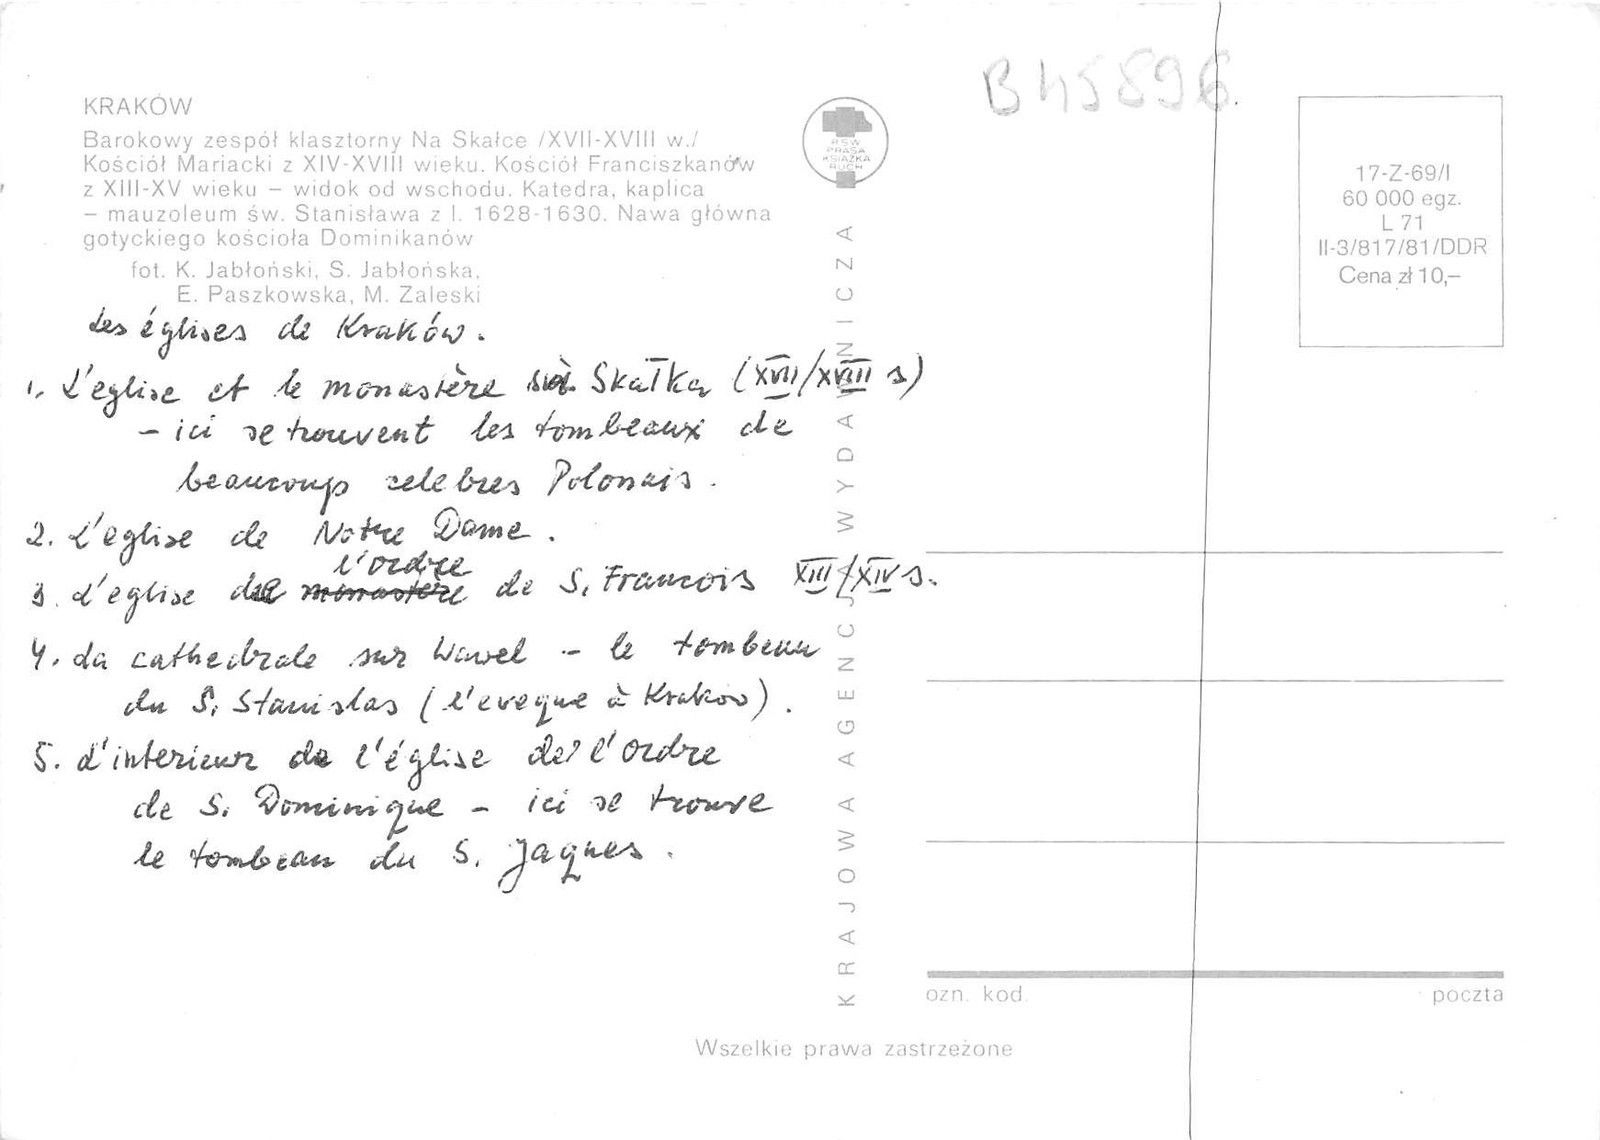 B45896.
KRAKÓW
Barokowy zespół klasztorny Na Skałce /XVII-XVIII w./
Kościół Mariacki z XIV-XVIII wieku. Kościół Franciszkanów
z XIII-XV wieku – widok od wschodu. Katedra, kaplica
– mauzoleum św. Stanisława z l. 1628-1630. Nawa główna
gotyckiego kościoła Dominikanów
fot. K. Jabłoński, S. Jabłońska,
E. Paszkowska, M. Zaleski
Les églises de Kraków.
1. L'eglise et le monastère à Skałka (XVII/XVIII s)
– ici se trouvent les tombeaux de
beaucoup celebres Polonais.
2. L'eglise de Notre Dame.
l'ordre
3. L'eglise de monastère de S. Francois XIII/XIV s.
4. La cathedrale sur Wawel – le tombeau
du S. Stanislas (l'eveque à Krakow).
5. L'interieur de l'église de l'ordre
de S. Dominique – ici se trouve
le tombeau du S. Jaques.
RSW
PRASA
KSIĄŻKA
RUCH
KRAJOWA AGENCJA WYDAWNICZA
17-Z-69/I
60 000 egz.
L 71
II-3/817/81/DDR
Cena zł 10,–
ozn. kod.
poczta
Wszelkie prawa zastrzeżone